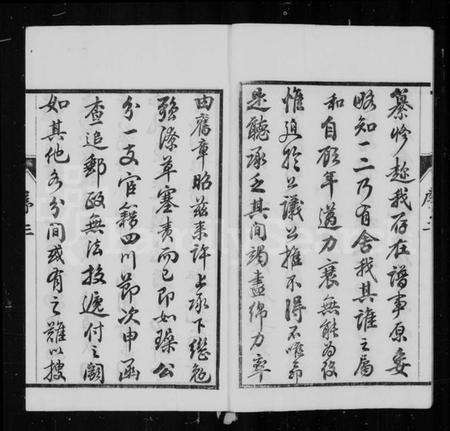 纂修趂我存在譜事原委
略知一二乃有舍我其誰之属
和自顧年邁力衰無能為役
惟迫於公議公推不得不唯命
是聽承乏其间竭盡綿力率
由舊章昭兹来許上承下繼勉
強滌草塞責而已即如璪公
分一支官籍四川節次申函
查追郵政無法投遞付之闕
如其他各分间或有之難以搜
序三